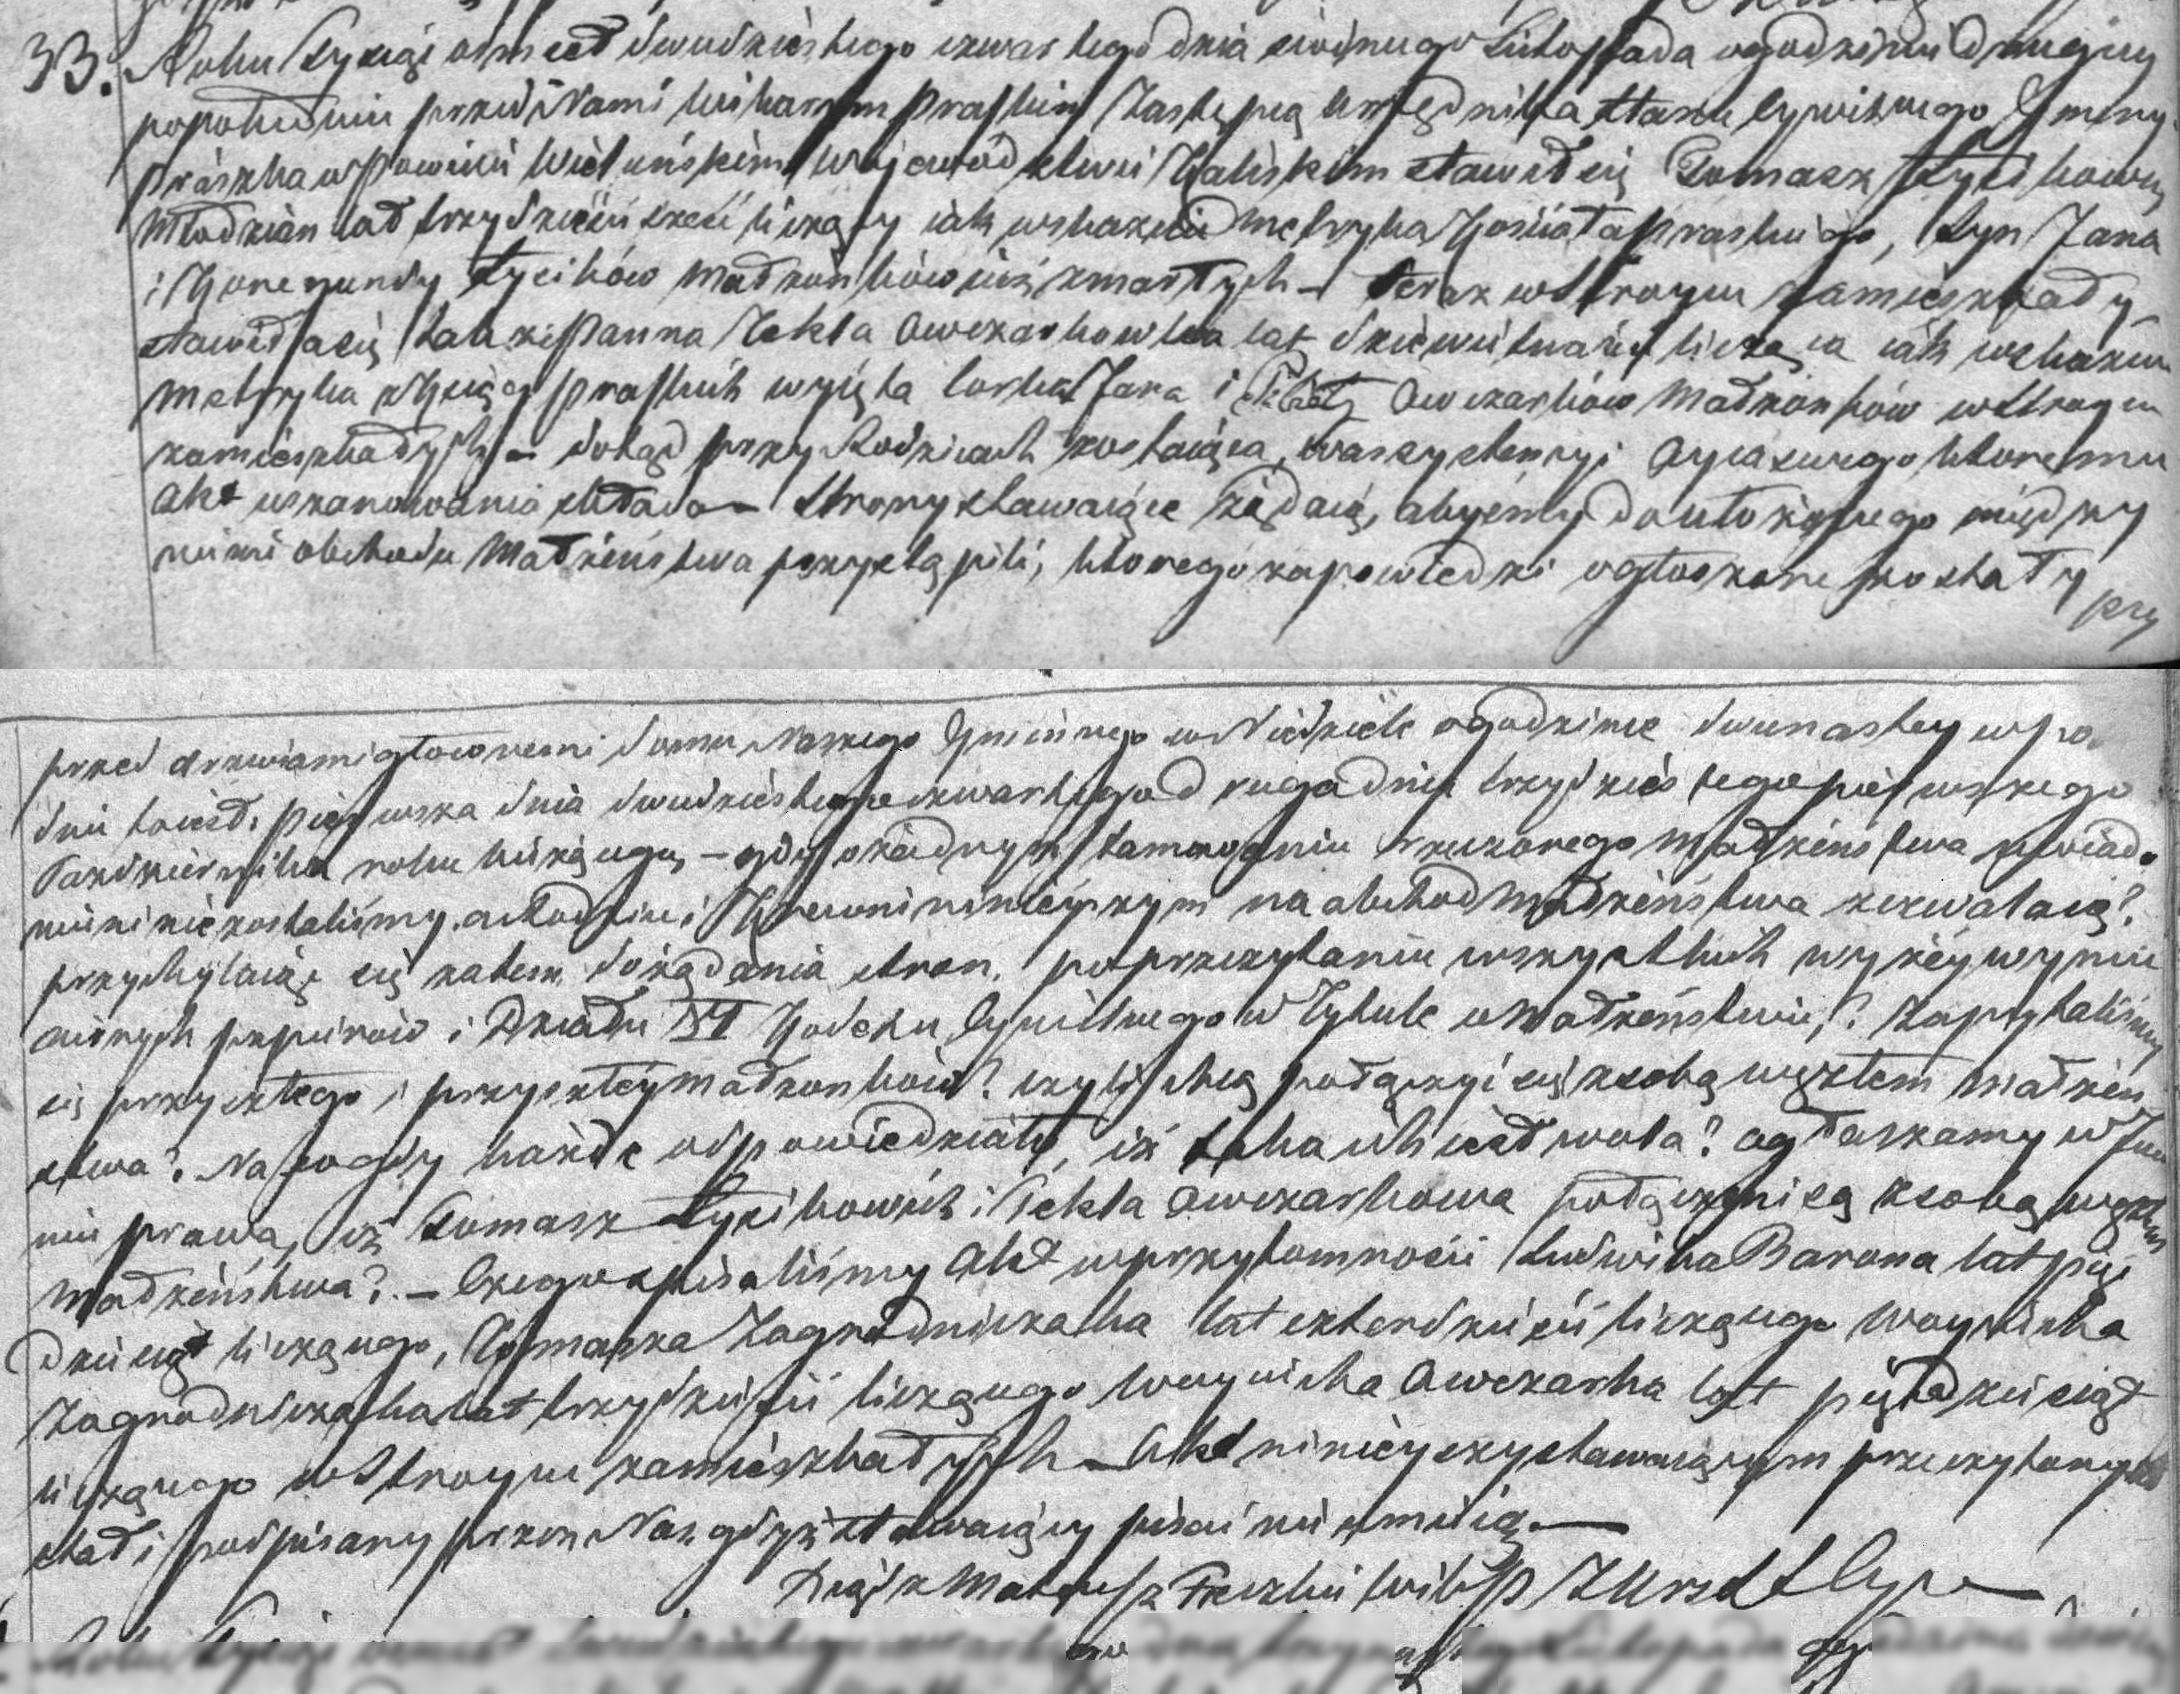 33. Roku tysiąc osmset dwudziestego czwartego dnia siodmego Listopada o godzinie drugiey
popołudniu przed Nami wikarym Praskim Zastępcą Urzędnika Stanu Cywilnego Gminy
Praszka w Powiecie Wieluńskim Wojewodztwie Kaliskim stawił się Tomasz
Młodzian lat trzydzieści sześć liczący iak wskazuie metryka Koscioła Praskiego, Syn Jana
i Konegundy Małżonków iuż zmarłych – teraz w Stroycu zamieszkały
stawiła się także Panna Tekla Owczarkowka lat dziewietnaście licząca iak wskazuie
metryka z Xiąg Praskich wyięta Corka Jana i Owczarków Małżonków w Stroycu
zamieszkałych – dotąd przy Rodzicach zostaiąca, w assystencyi Oyca swego ktoremu
Akt uszanowania składa – Strony stawaiące żądaią, abyśmy do ułożonego między
niemi obchodu Małżeństwa przystąpili, ktorego zapowiedzi ogłoszone zostały
przed drzwiami głownemi domu Naszego Gminnego w Niedziele o godzinie dwunastey w po
dnie to iest: pierwsza dnia dwudziestego czwartego druga dnia trzydziestego pierwszego
Pazdziernika roku bieżącego, – gdy o żadnym tamowaniu rzeczonego Małżeństwa uwiado
mieni nie zostaliśmy, a Rodzice i Krewni ninieyszym na obchod Małżeństwa zezwalaią?
przychylaiąc się zatem do żądania stron, po przeczytaniu wszystkich wyżey wymie
nionych papierow i Działu VI Kodexu Cywilnego w Tytule o Małżeństwie,? Zapytaliśmy
się przyszłego i przyszłey małżonkow? czyli chcą połączyć się z sobą węzłem małżen
stwa? Na co gdy każde odpowiedziało, iż taka ich iest wola? ogłaszamy w Imie
niu prawa, iż Tomasz i Tekla Owczarkowa połączeni są z sobą węzłem
Małżeństwa? – Czego spisaliśmy Akt w przytomności Ludwika Barona lat pięć
dziesiąt liczącego, Tomasza Zagrodniczaka lat czterdzieści liczącego Woyciecha
Zagrodniczaka lat trzydzieści liczącego Woyciecha Owczarka lat pięćdziesiąt
liczącego w Stroycu zamieszkałych – Akt ninieyszy stawaiącym przeczytany zo
stał i podpisany przez Nas gdyż stawaiący pisać nie umieią. –
Xiądz Mateusz